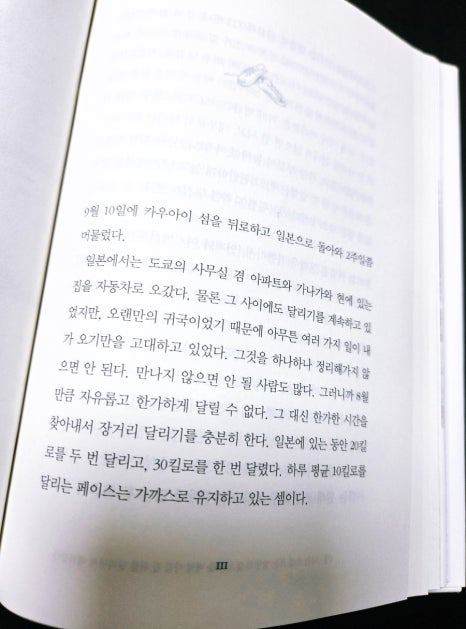 9월 10일에 카우아이 섬을 뒤로하고 일본으로 돌아와 2주일쯤
머물렀다.
일본에서는 도쿄의 사무실 겸 아파트와 가나가와 현에 있는
집을 자동차로 오갔다. 물론 그 사이에도 달리기를 계속하고 있
었지만, 오랜만의 귀국이었기 때문에 아무튼 여러 가지 일이 내
가 오기만을 고대하고 있었다. 그것을 하나하나 정리해가지 않
으면 안 된다. 만나지 않으면 안 될 사람도 많다. 그러니까 8월
만큼 자유롭고 한가하게 달릴 수 없다. 그 대신 한가한 시간을
찾아내서 장거리 달리기를 충분히 한다. 일본에 있는 동안 20킬
로를 두 번 달리고, 30킬로를 한 번 달렸다. 하루 평균 10킬로를
달리는 페이스는 가까스로 유지하고 있는 셈이다.
111